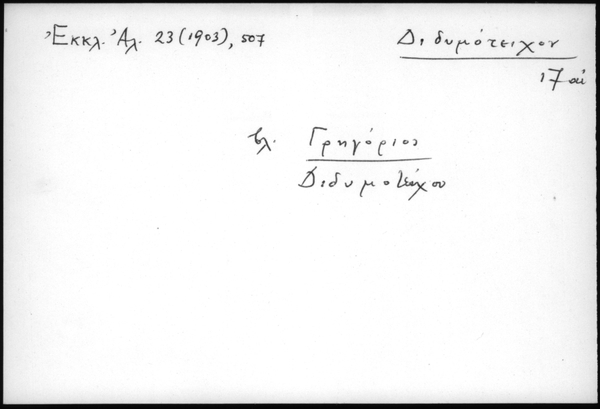 Ἐκκλ. Ἀλ. 23 (1903), 507
Διδυμότειχον
17 αἰ
βλ. Γρηγόριος
Διδυμοτείχου